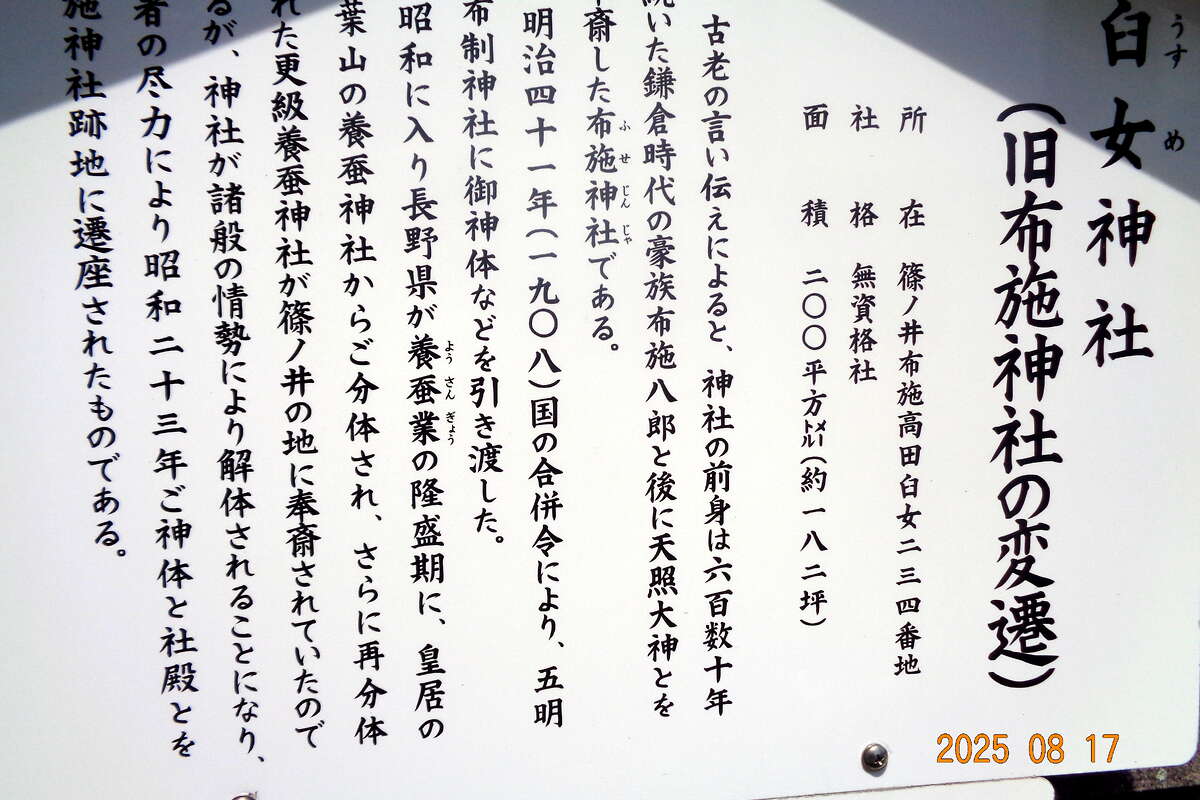 臼女神社
うすめ
（旧布施神社の変遷）
所在 篠ノ井布施高田臼女二三四番地
社格 無資格社
面積 二〇〇平方メートル（約一八二坪）
古老の言い伝えによると、神社の前身は六百数十年
続いた鎌倉時代の豪族布施八郎と後に天照大神とを
斎した布施神社である。
ふせじんじゃ
明治四十一年（一九〇八）国の合併令により、五明
布制神社に御神体などを引き渡した。
昭和に入り長野県が養蚕業の隆盛期に、皇居の
ようさんぎょう
葉山の養蚕神社からご分体され、さらに再分体
れた更級養蚕神社が篠ノ井の地に奉斎されていたので
るが、神社が諸般の情勢により解体されることになり、
者の尽力により昭和二十三年ご神体と社殿とを
施神社跡地に遷座されたものである。
2025 08 17